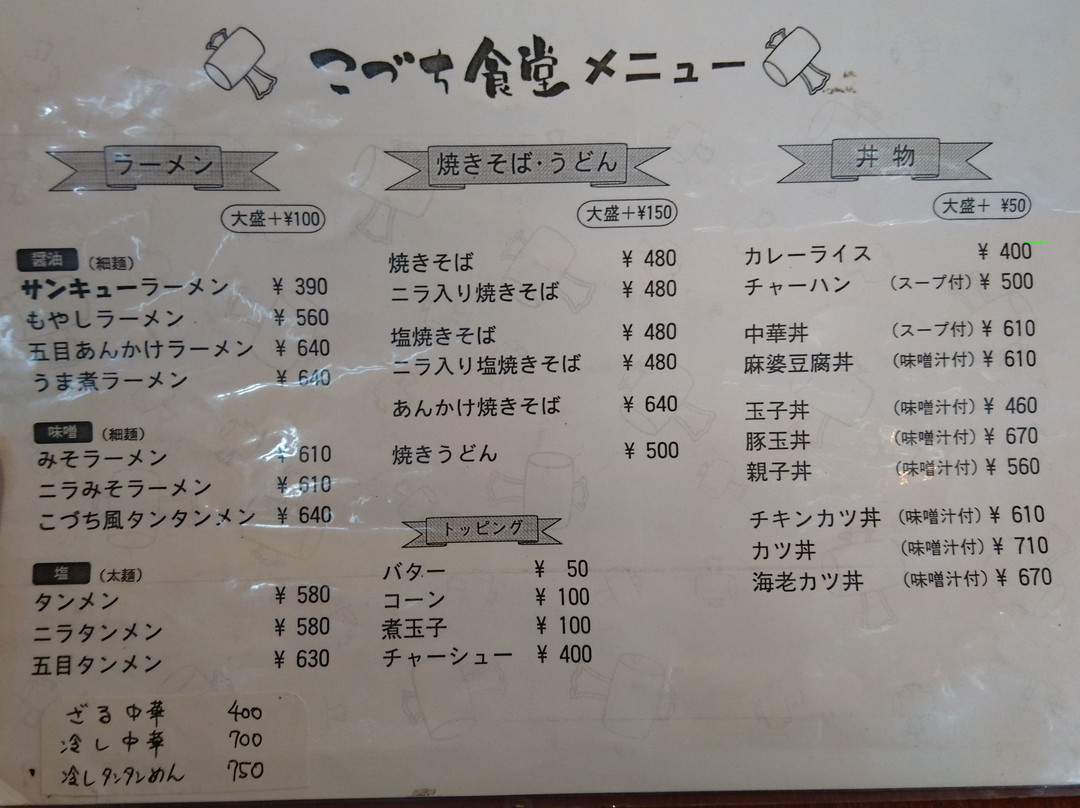 こづち食堂メニュー
ラーメン
大盛+¥100
醤油 (細麺)
サンキューラーメン ¥ 390
もやしラーメン ¥ 560
五目あんかけラーメン ¥ 640
うま煮ラーメン ¥ 640
味噌 (細麺)
みそラーメン ¥ 610
ニラみそラーメン ¥ 610
こづち風タンタンメン ¥ 640
塩 (太麺)
タンメン ¥ 580
ニラタンメン ¥ 580
五目タンメン ¥ 630
ざる中華 400
冷し中華 700
冷しタンタンめん 750
焼きそば・うどん
大盛+¥150
焼きそば ¥ 480
ニラ入り焼きそば ¥ 480
塩焼きそば ¥ 480
ニラ入り塩焼きそば ¥ 480
あんかけ焼きそば ¥ 640
焼きうどん ¥ 500
トッピング
バター ¥ 50
コーン ¥ 100
煮玉子 ¥ 100
チャーシュー ¥ 400
丼物
大盛+ ¥50
カレーライス ¥ 400
チャーハン (スープ付) ¥ 500
中華丼 (スープ付) ¥ 610
麻婆豆腐丼 (味噌汁付) ¥ 610
玉子丼 (味噌汁付) ¥ 460
豚玉丼 (味噌汁付) ¥ 670
親子丼 (味噌汁付) ¥ 560
チキンカツ丼 (味噌汁付) ¥ 610
カツ丼 (味噌汁付) ¥ 710
海老カツ丼 (味噌汁付) ¥ 670